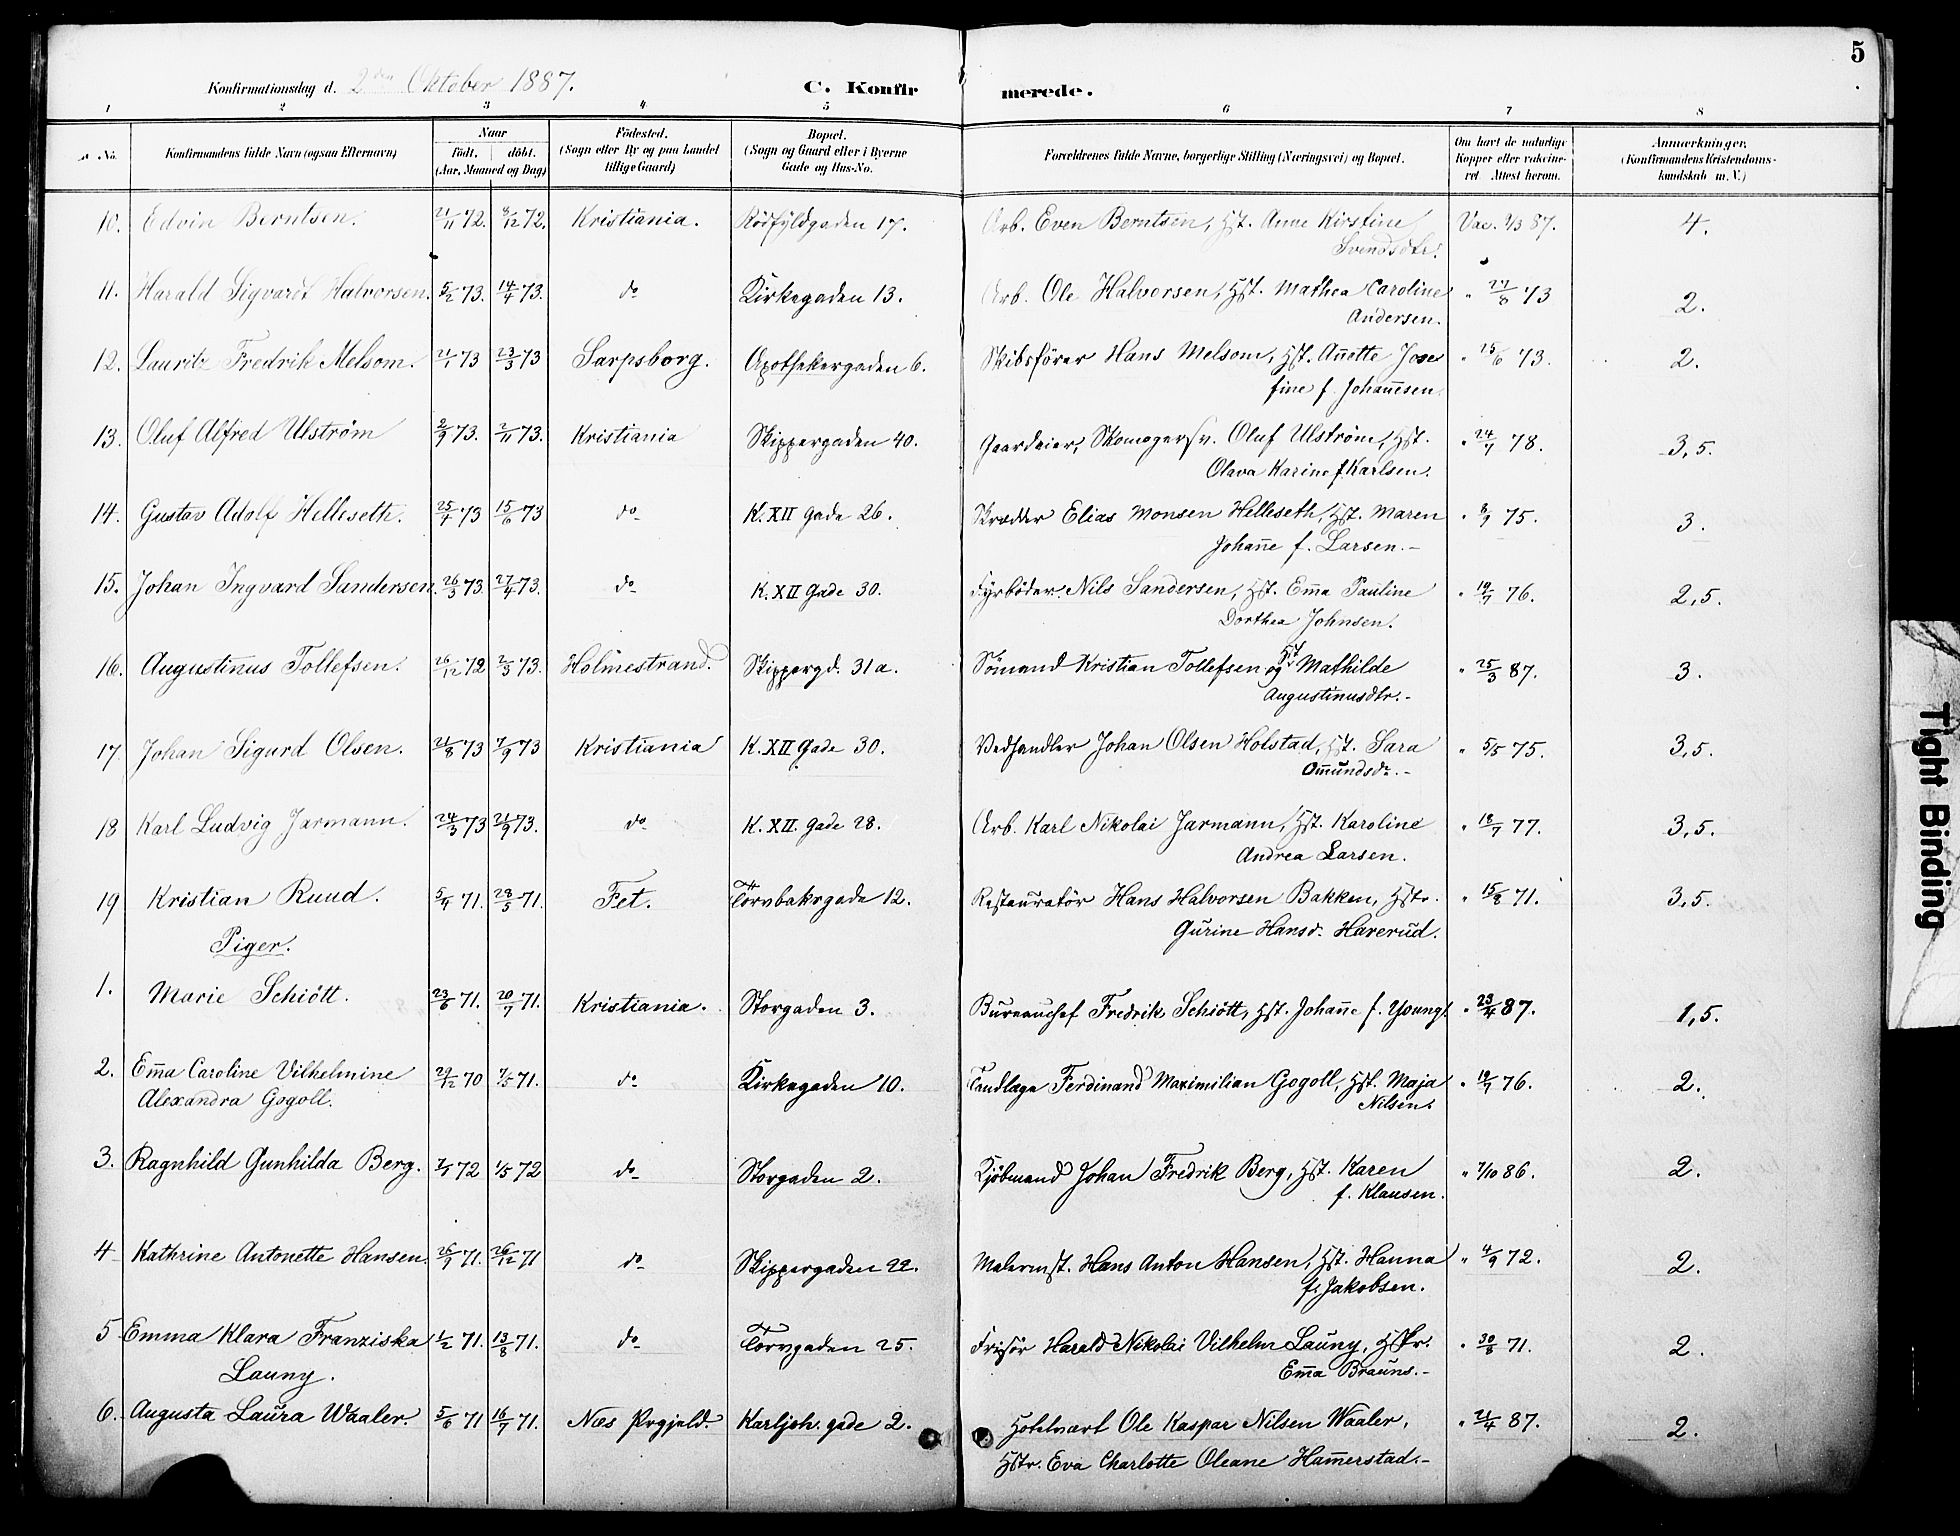 5
Konfirmationsdag d. 2den Oktober 1887. C. Konfirmerede.
1 2 3 4 5 6 7 8
No. Konfirmandens fulde Navn (ogsaa Efternavn) Naar Født, døbt. (Aar, Maaned og Dag) Fødested. (Sogn eller By og paa Landet tillige Gaard) Bopæl. (Sogn og Gaard eller i Byerne Gade og Hus-No. Forældrenes fulde Navne, borgerlige Stilling (Næringsvei) og Bopæl. Om havt de naturlige Kopper eller vakcineret Attest herom. Anmærkninger, (Konfirmandens Kristendomskundskab m. V.)
10. Edvin Berntsen. 21/11 72. 8/12 72. Kristiania. Rödfyldgaden 17. Arb. Even Berntsen, Hst. Anne Kirstine Vac. 2/3 87. 4.
Svendsdtr.
11. Harald Sigvardt Halvorsen. 5/2 73. 14/4 73. do Kirkegaden 13. Arb. Ole Halvorsen, Hst. Mathea Caroline " 27/8 73 2.
Andersen.
12. Lauritz Fredrik Melsom. 21/1 73 23/3 73 Sarpsborg. Apothekergaden 6. Skibsfører Hans Melsom, Hst. Anette Jose " 15/6 73. 2.
fine f. Johannesen.
13. Oluf Alfred Ulström 2/9 73. 2/11 73. Kristiania Skippergaden 40. Gaardeier, Skomagersv. Oluf Ulström, Hst. " 24/7 78. 3,5.
Olava Karine f. Karlsen.
14. Gustav Adolf Helleseth. 25/4 73 15/6 73 do K. XII Gade 26. Skrædder Elias Monsen Helleseth, Hst. Maren " 8/9 75. 3.
Johañe f. Larsen.-
15. Johan Ingvard Sandersen. 26/3 73. 27/4 73. do K. XII Gade 30. Fyrböder Nils Sandersen, Hst. Em̄a Pauline " 19/7 76. 2,5.
Dorthea Johnsen.
16. Augustinus Tollefsen. 26/12 72 2/3 73. Holmestrand. Skippergd. 31a. Sömand Kristian Tollefsen og Hst. Mathilde " 25/3 87. 3.
Augustinusdtr.-
17. Johan Sigurd Olsen. 21/8 73 7/9 73 Kristiania K. XII Gade 30. Vedhandler Johan Olsen Holstad, Hst. Sara " 5/5 75. 3,5.
Om̄undsdr.-
18 Karl Ludvig Jarmann. 24/3 73 21/9 73. do K. XII. Gade 28. Arb. Karl Nikolai Jarmann, Hst. Karoline " 18/7 77. 3,5.
Andrea Larsen.
19 Kristian Ruud. 5/4 71. 28/5 71. Fet. Torvbakgade 12. Restauratör Hans Halvorsen Bakken, Hstr. " 15/8 71. 3,5.
Gurine Hansd. Harerud.
Piger.
1. Marie Schiött. 23/6 71. 20/7 71. Kristiania. Storgaden 3. Bureauchef Fredrik Schiött, Hst. Johañe f. Young. " 23/4 87. 1,5.
2. Em̄a Caroline Vilhelmine 29/12 70 7/5 71. do Kirkegaden 10. Tandlæge Ferdinand Maximilian Gogoll, Hst. Maja " 19/7 76. 2.
Alexandra Gogoll. Nilsen.
3. Ragnhild Gunhilda Berg. 7/1 72 1/5 72 do Storgaden 2. Kjöbmand Johan Fredrik Berg, Hst. Karen " 7/10 86. 2.
f. Klausen.
4 Kathrine Antonette Hansen. 26/9 71. 26/12 71 do Skippergaden 22. Malermst. Hans Anton Hansen, Hst. Hanna " 4/9 72. 2.
f. Jakobsen.
5 Emma Klara Franziska 1/2 71. 13/8 71. do Torvgaden 25. Frisör Harald Nikolai Vilhelm Launy, Hstr. " 30/8 71. 2.
Launy. Em̄a Brauns.-
6. Augusta Laura Waaler. 5/6 71 16/7 71. Næs Prgjeld. Karljoh. gade 2. Hotelvært Ole Kaspar Nilsen Waaler, " 21/4 87. 2.
Hstr. Eva Charlotte Oleane Ham̄erstad.-
Tight Binding